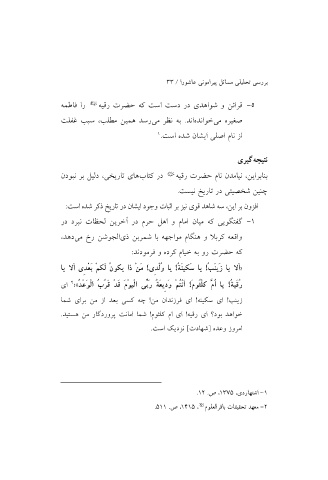 بررسی تحلیلی مسائل پیرامونی عاشورا / ۳۳
۵- قرائن و شواهدی در دست است که حضرت رقیه را فاطمه
صغیره می‌خوانده‌اند. به نظر می‌رسد همین مطلب، سبب غفلت
از نام اصلی ایشان شده است.۱
نتیجه‌گیری
بنابراین، نیامدن نام حضرت رقیه در کتاب‌های تاریخی، دلیل بر نبودن
چنین شخصیتی در تاریخ نیست.
افزون بر این، سه شاهد قوی نیز بر اثبات وجود ایشان در تاریخ ذکر شده است:
۱- گفتگویی که میان امام و اهل حرم در آخرین لحظات نبرد در
واقعه کربلا و هنگام مواجهه با شمربن ذی‌الجوشن رخ می‌دهد،
که حضرت رو به خیام کرده و فرمودند:
«اَلا یا زَینَبُ! یا سَکینَةُ! یا وُلْدی! مَنْ ذا یَکونُ لَکمْ بَعْدی اَلا یا
رُقَیةُ! یا اُمَّ کلثُوم! اَنْتُمْ وَدیعَةُ رَبِّی الْیومَ قَدْ قَرُبَ الْوَعْدُ»؛۲ ای
زینب! ای سکینه! ای فرزندان من! چه کسی بعد از من برای شما
خواهد بود؟ ای رقیه! ای ام کلثوم! شما امانت پروردگار من هستید.
امروز وعده [شهادت] نزدیک است.
۱- اشتهاردی، ۱۳۷۵، ص. ۱۲.
۲- معهد تحقیقات باقرالعلوم، ۱۴۱۵، ص. ۵۱۱.